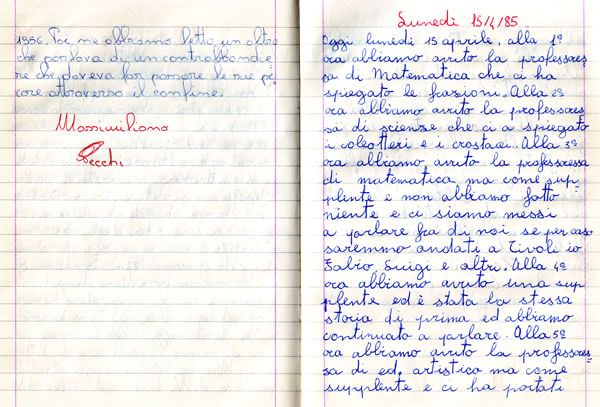 1956. Poi ne abbiamo letto un altro
che parlava di un contrabbandie
re che doveva far passare le sue pe
core attraverso il confine.
Massimiliano
Cecchi
Lunedì 15/4/85
Oggi lunedì 15 aprile, alla 1ª
ora abbiamo avuto la professores
sa di Matematica che ci ha
spiegato le frazioni. Alla 2ª
ora abbiamo avuto la professores
sa di scienze che ci a spiegato
i coleotteri e i crostacei. Alla 3ª
ora abbiamo avuto la professoressa
di matematica ma come sup
plente e non abbiamo fatto
niente e ci siamo messi
a parlare fra di noi se per caso
saremmo andati a Tivoli io
Fabio, Luigi e altri. Alla 4ª
ora abbiamo avuto una sup
plente ed è stata la stessa
storia di prima ed abbiamo
continuato a parlare. Alla 5ª
ora abbiamo avuto la professores
sa di ed. artistica ma come
supplente e ci ha portati